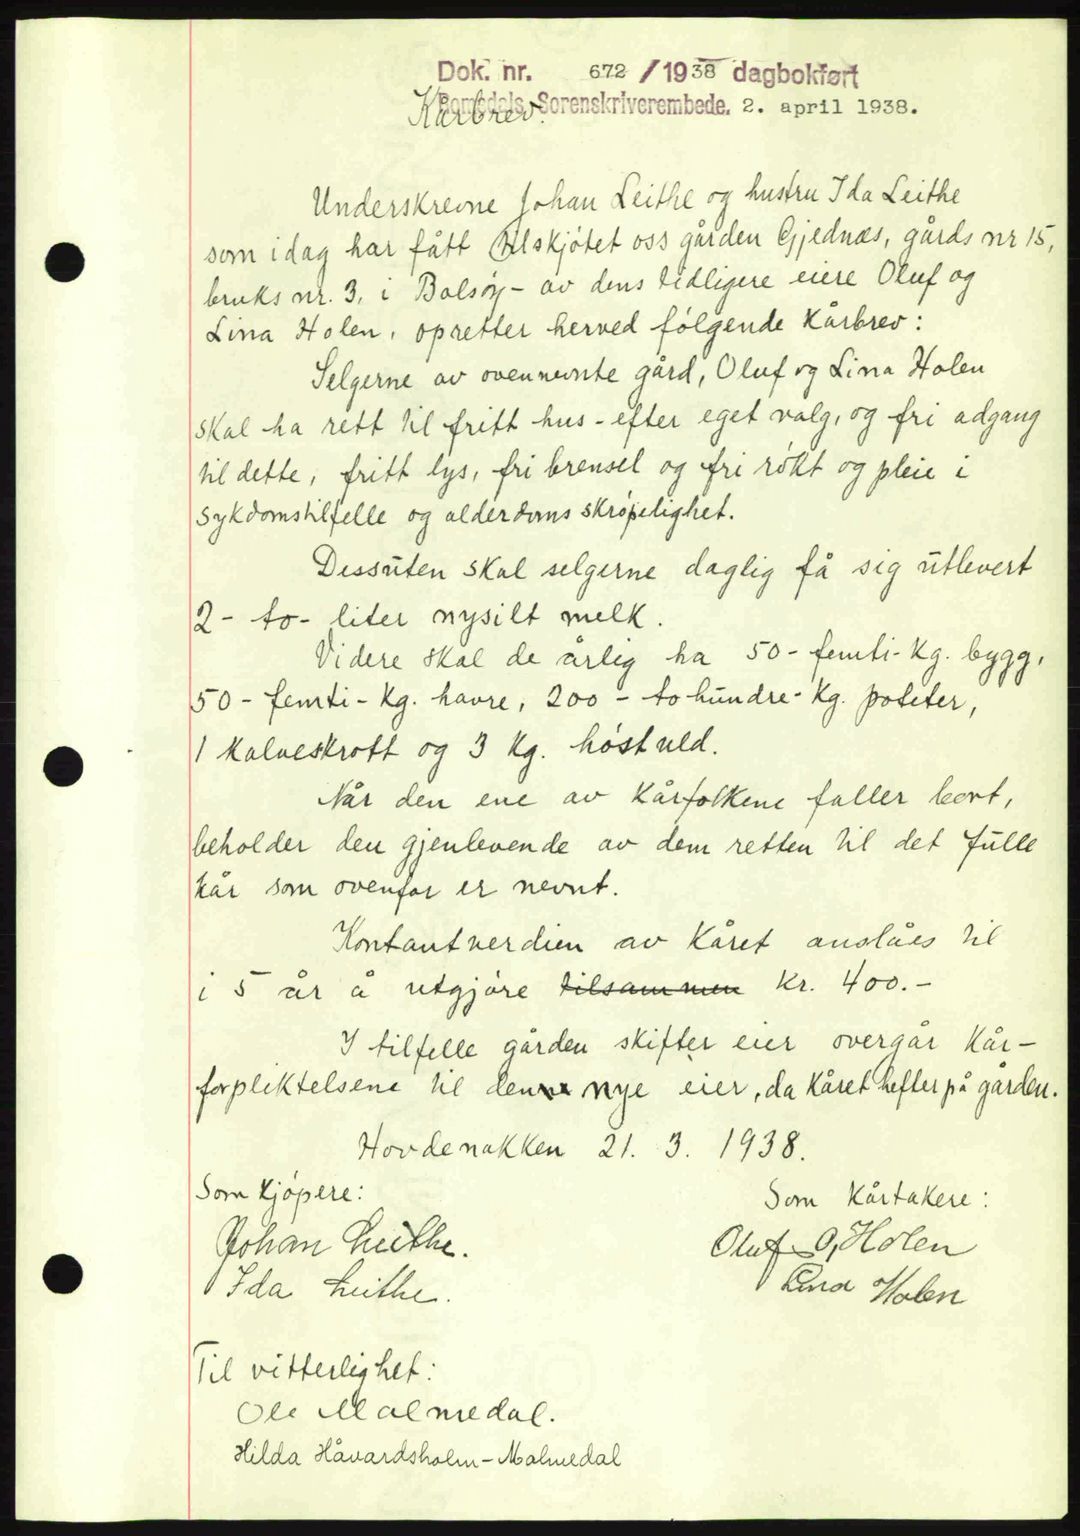 Dok. nr. 672 / 1938 dagbokført
Romsdals Sorenskriverembede. 2. april 1938.
Kårbrev.
Underskrevne Johan Leithe og hustru Ida Leithe
som idag har fått tilskjøtet oss gården Gjednæs, gårds nr 15,
bruks nr. 3, i Bolsøy - av dens tidligere eiere Oluf og
Lina Holen, opretter herved følgende kårbrev:
Selgerne av ovennevnte gård, Oluf og Lina Holen
skal ha rett til fritt hus - efter eget valg, og fri adgang
til dette, fritt lys, fri brensel og fri røkt og pleie i
sykdomstilfelle og alderdoms skrøpelighet.
Dessuten skal selgerne daglig få sig utlevert
2 - to - liter nysilt melk.
Videre skal de årlig ha 50 - femti - kg. bygg,
50 - femti - kg. havre, 200 - to hundre - kg. poteter,
1 kalveskrott og 3 kg. høstuld.
Når den ene av kårfolkene faller bort,
beholder den gjenlevende av dem retten til det fulle
kår som ovenfor er nevnt.
Kontantverdien av kåret anslåes til
i 5 år å utgjøre tilsammen kr. 400.-
I tilfelle gården skifter eier overgår kår-
forpliktelsene til den nye eier, da kåret hefter på gården.
Hovdenakken 21. 3. 1938.
Som kjøpere:
Som kårtakere:
Johan Leithe.
Oluf O, Holen
Ida Leithe.
Lina Holen
Til vitterlighet:
Ole Malmedal.
Hilda Håvardsholm - Malmedal